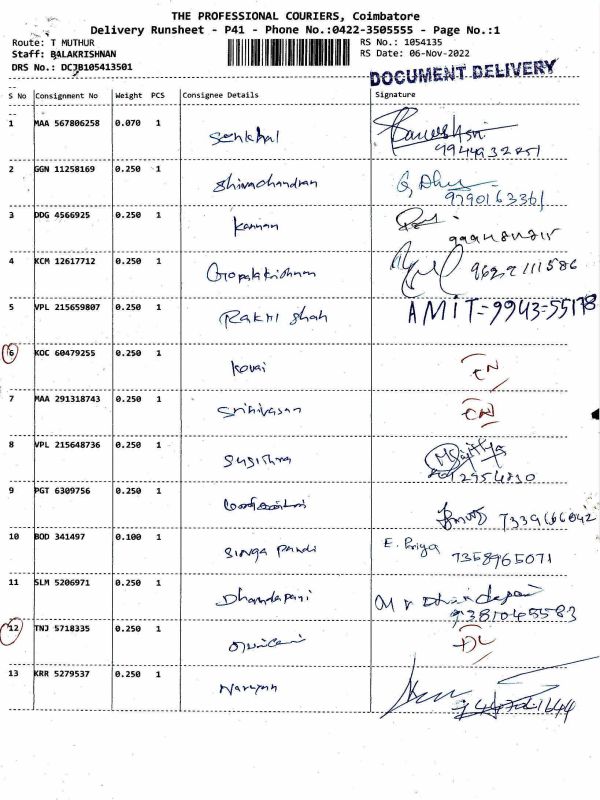 THE PROFESSIONAL COURIERS, Coimbatore
Delivery Runsheet - P41 - Phone No.:0422-3505555 - Page No.:1
Route: T MUTHUR RS No.: 1054135
Staff: BALAKRISHNAN RS Date: 06-Nov-2022
DRS No.: DCJB105413501
DOCUMENT DELIVERY
S No Consignment No Weight PCS Consignee Details Signature
1 MAA 567806258 0.070 1
2 GGN 11258169 0.250 1 Shivachandran
9790163361
3 DDG 4566925 0.250 1 Kannan
4 KCM 12617712 0.250 1 Gopalakrishnan
5 VPL 215659807 0.250 1 Rakhi Shah AMIT=9943-55178
6 KOC 60479255 0.250 1 kovai CN
7 MAA 291318743 0.250 1 Srinivasan CN
8 VPL 215648736 0.250 1
9 PGT 6309756 0.250 1
7339666042
10 BOD 341497 0.100 1 Singa Pandi E. Priya 7358965071
11 SLM 5206971 0.250 1 Dhandapani
9381045583
12 TNJ 5718335 0.250 1 DL
13 KRR 5279537 0.250 1 Narayan